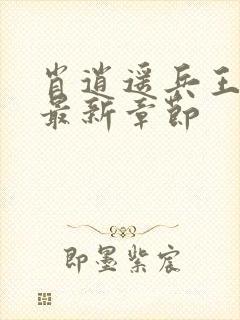 肖逍遥兵王
最新章节
即墨紫宸